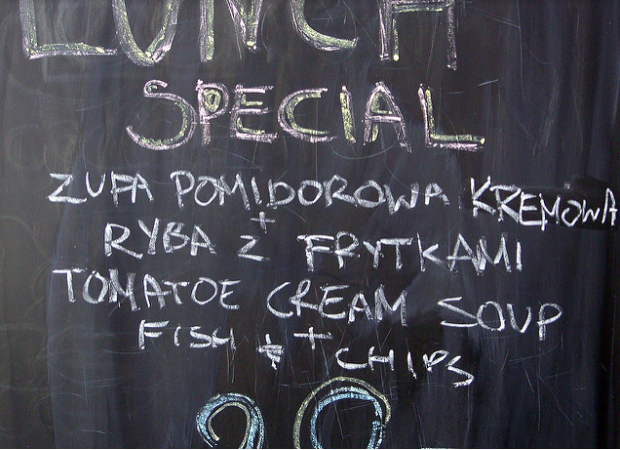 LUNCH
SPECIAL
ZUPA POMIDOROWA KREMOWA
+
RYBA Z FRYTKAMI
TOMATOE CREAM SOUP
+
FISH & CHIPS